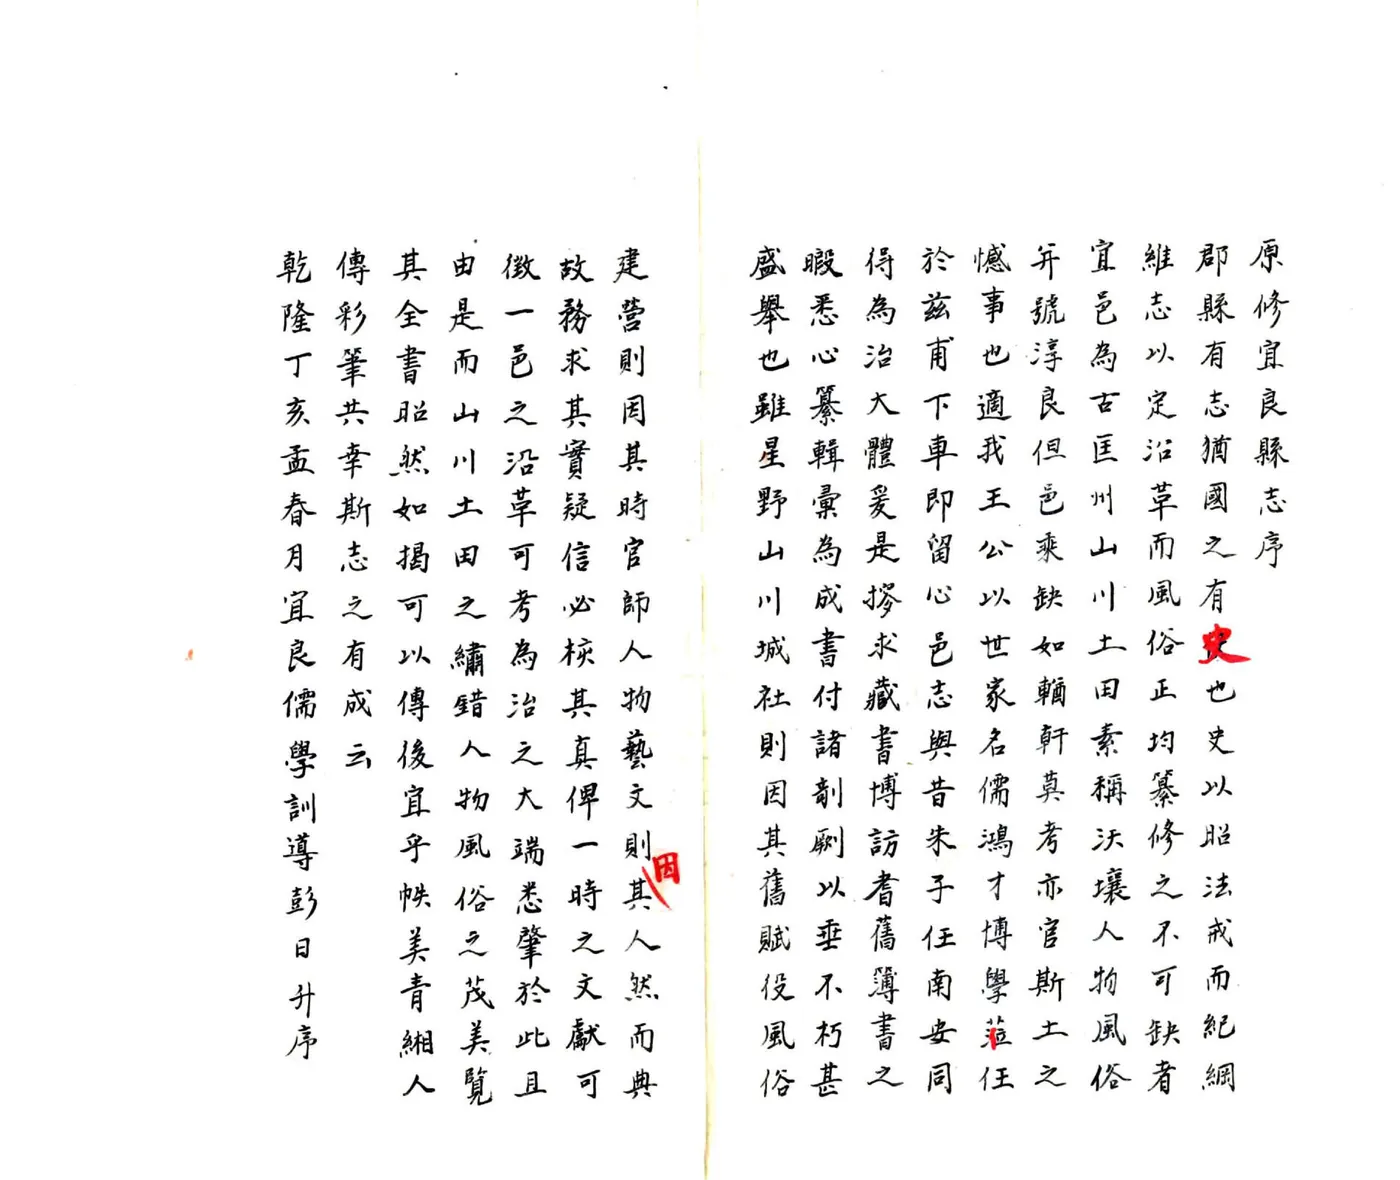 原修宜良縣志序
郡縣有志猶國之有史也史以昭法戒而紀綱
維志以定沿革而風俗正均纂修之不可缺者
宜邑為古匡州山川土田素稱沃壤人物風俗
并號淳良但邑乘缺如輶軒莫考亦官斯土之
憾事也適我王公以世家名儒鴻才博學蒞任
於茲甫下車即留心邑志與昔朱子任南安同
得為治大體爰是搜求藏書博訪耆舊簿書之
暇悉心纂輯彙為成書付諸剞劂以垂不朽甚
盛舉也雖星野山川城社則因其舊賦役風俗
建營則因其時官師人物藝文則因其人然而典
故務求其實疑信必核其真俾一時之文獻可
徵一邑之沿革可考為治之大端悉肇於此且
由是而山川土田之繡錯人物風俗之茂美覽
其全書昭然如揭可以傳後宜乎帙美青緗人
傳彩筆共幸斯志之有成云
乾隆丁亥孟春月宜良儒學訓導彭日升序